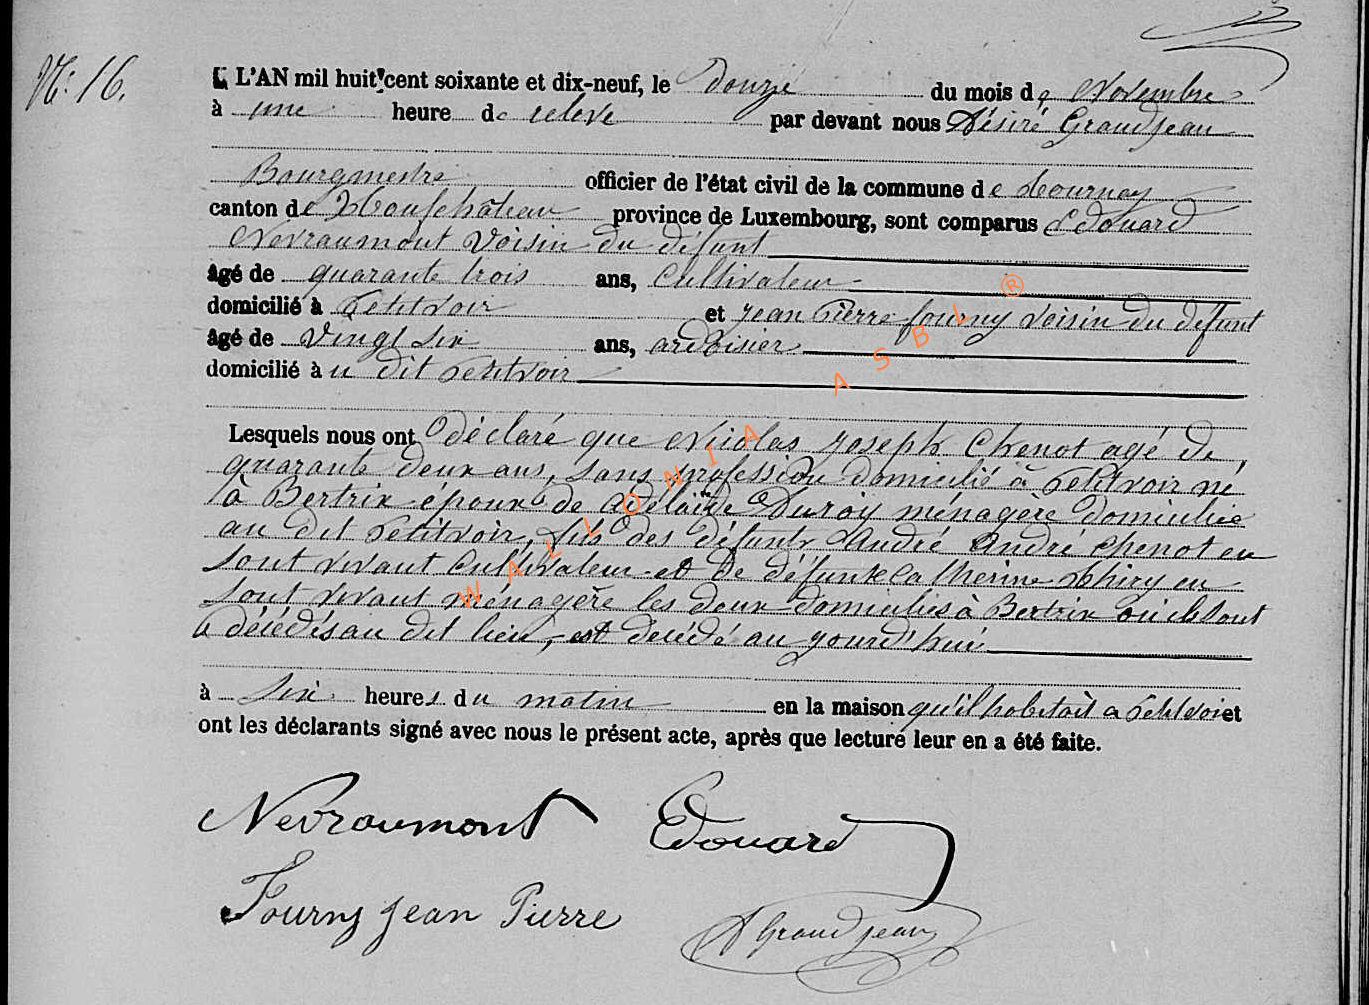 N: 16.
L'AN mil huit cent soixante et dix-neuf, le Douze du mois de Novembre
à une heure de relevé par devant nous Désiré Grandjean
Bourgmestre officier de l'état civil de la commune de Tournay
canton de Neufchâteau province de Luxembourg, sont comparus Edouard
Nevraumont Voisin du défunt
âgé de quarante trois ans, Cultivateur
domicilié à Petitvoir et Jean Pierre fourny Voisin du défunt
âgé de Vingt six ans, ardoisier
domicilié à u dit Petitvoir
Lesquels nous ont Déclaré que Nicolas Joseph Chenot agé de
quarante deux ans, sans profession Domicilié à Petitvoir né
à Bertrix époux de Adélaïde Duroy ménagère Domiciliée
au dit Petitvoir, fils des défunts André André Chenot en
sont vivant Cultivateur et de défunte Catherine Thiry en
sont vivant ménagère les deux domiciliés à Bertrix où ils sont
décédés au dit lieu, est décédé au jourd'hui
à six heures du matin en la maison qu'il habitait a Petitvoir et
ont les déclarants signé avec nous le présent acte, après que lecture leur en a été faite.
Nevraumont Edouard
Fourny Jean Pierre
D Grandjean
WALLONIA ASBL ®